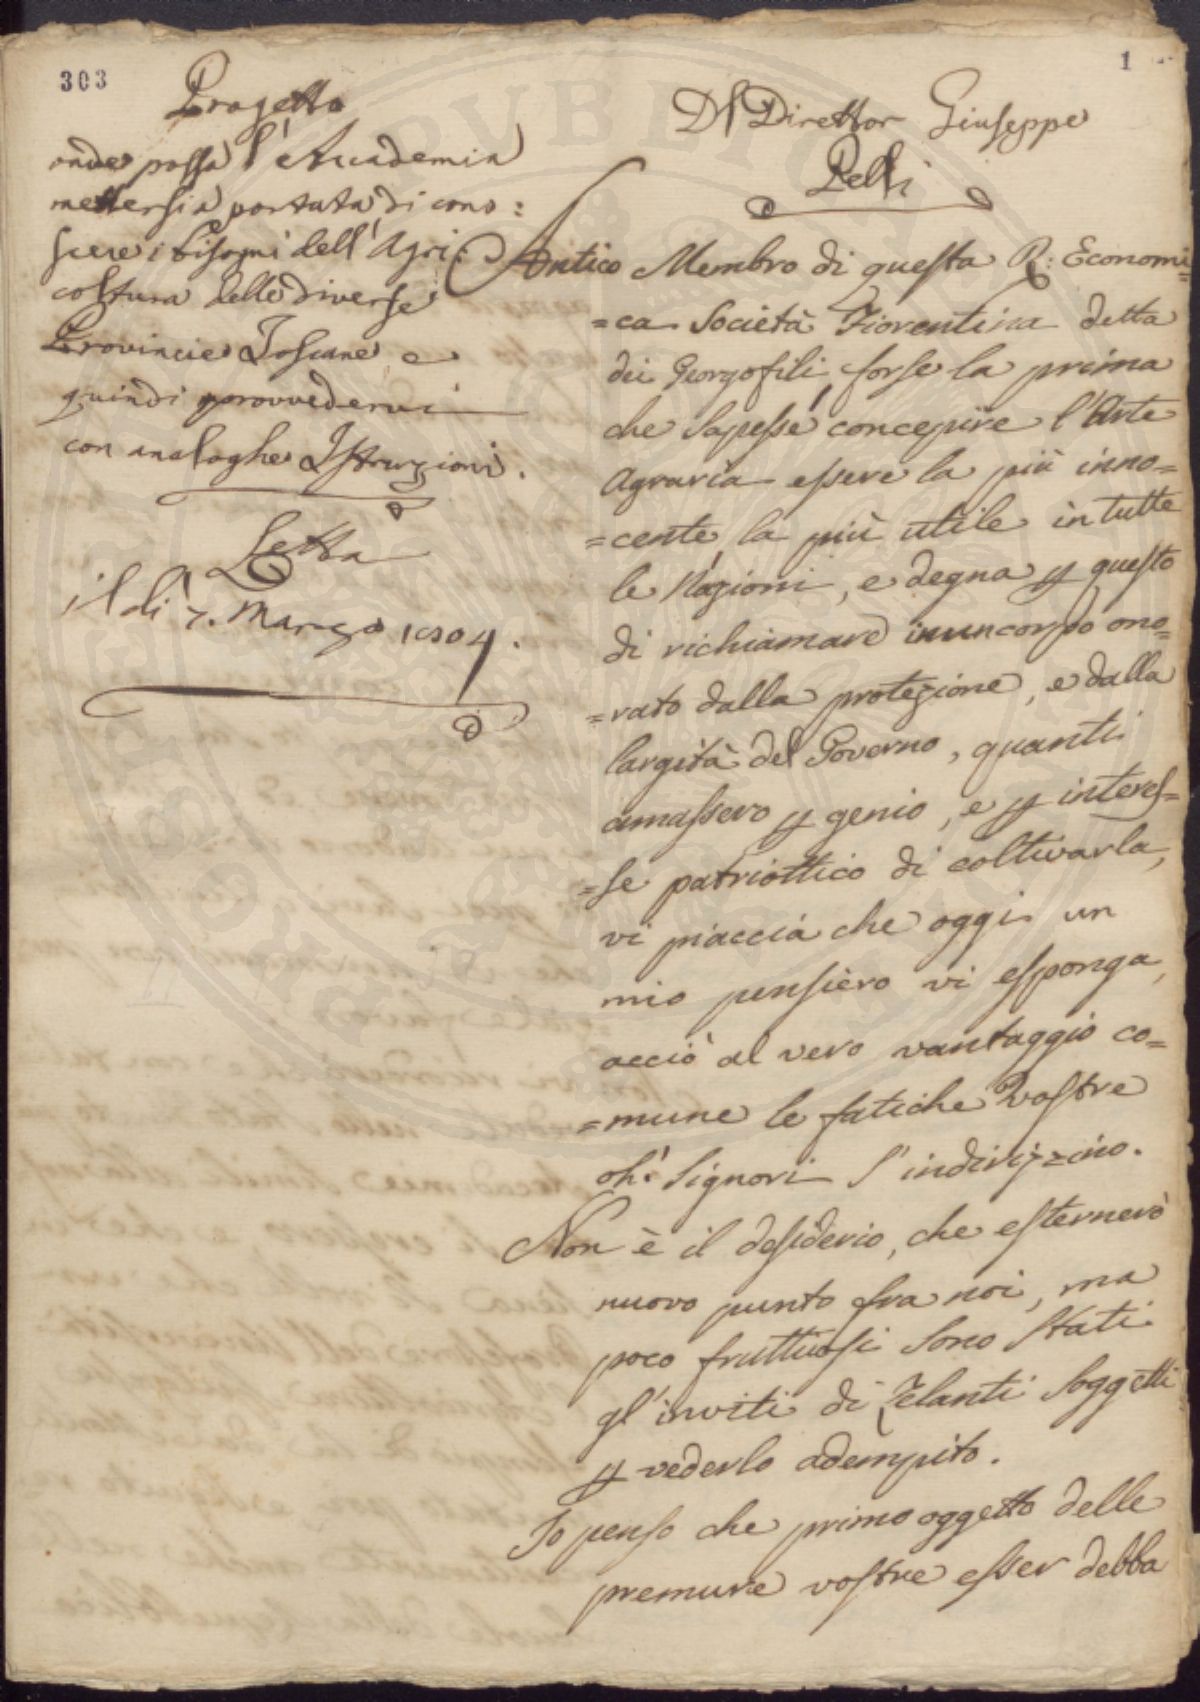 303
1
Progetto
onde possa l'Accademia
mettersi a portata di cono=
scere i bisogni dell'Agri=
coltura delle diverse
Provincie Toscane e
quindi provvedervi
con analoghe Istruzioni.
Letta
il dì 7. Marzo 1804.
Del Direttor Giuseppe
Pelli
Antico Membro di questa R: Economi=
=ca Società Fiorentina detta
dei Georgofili, forse la prima
che sapesse concepire l'Arte
Agraria essere la più inno=
=cente, la più utile in tutte
le Nazioni, e degna p questo
di richiamare in un corpo ono=
=rato dalla protezione, e dalla
largità del Governo, quanti
amassero p genio, e p interes=
=se patriottico di coltivarla,
vi piaccia che oggi un
mio pensiero vi esponga,
acciò al vero vantaggio co=
=mune le fatiche vostre
oh! Signori s'indirizzino.
Non è il desiderio, che esternerò
nuovo punto fra noi, ma
poco fruttuosi sono stati
gl'inviti di zelanti soggetti
p vederlo adempito.
Io penso che primo oggetto delle
premure vostre esser debba